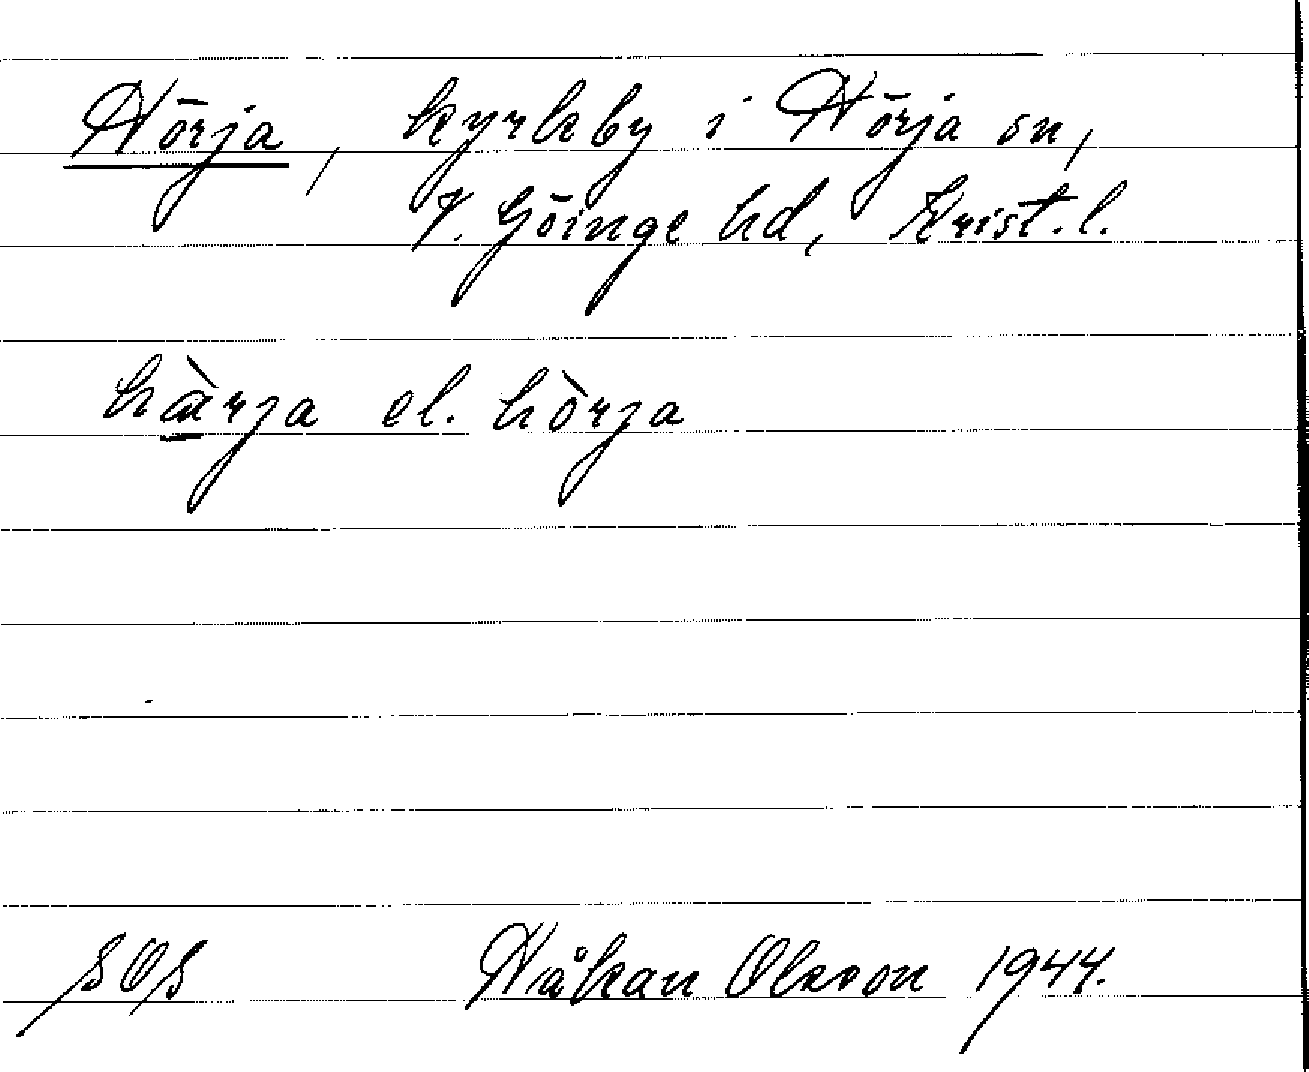 Hörja, kyrkby i Hörja sn,
V. Göinge hd, Krist. l.
hæ̀rja el. hòrja
SOS Håkan Olsson 1944.